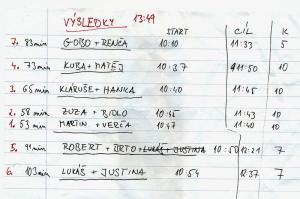 VÝSLEDKY 13:49
START CÍL K
7. 83min GOBO + RENČA 10:10 11:33 5
4. 73min KUBA + MATĚJ 10:37 11:50 10
3. 65min KLÁRUŠE + HANKA 10:40 11:45 10
2. 58min ZUZA + BIDLO 10:45 11:43 10
1. 53min MARTIN + VERČA 10:47 11:40 10
5. 91min ROBERT + BRTO + LUKÁŠ + JUSTINA 10:50 12:21 7
6. 103min LUKÁŠ + JUSTINA 10:54 12:37 7